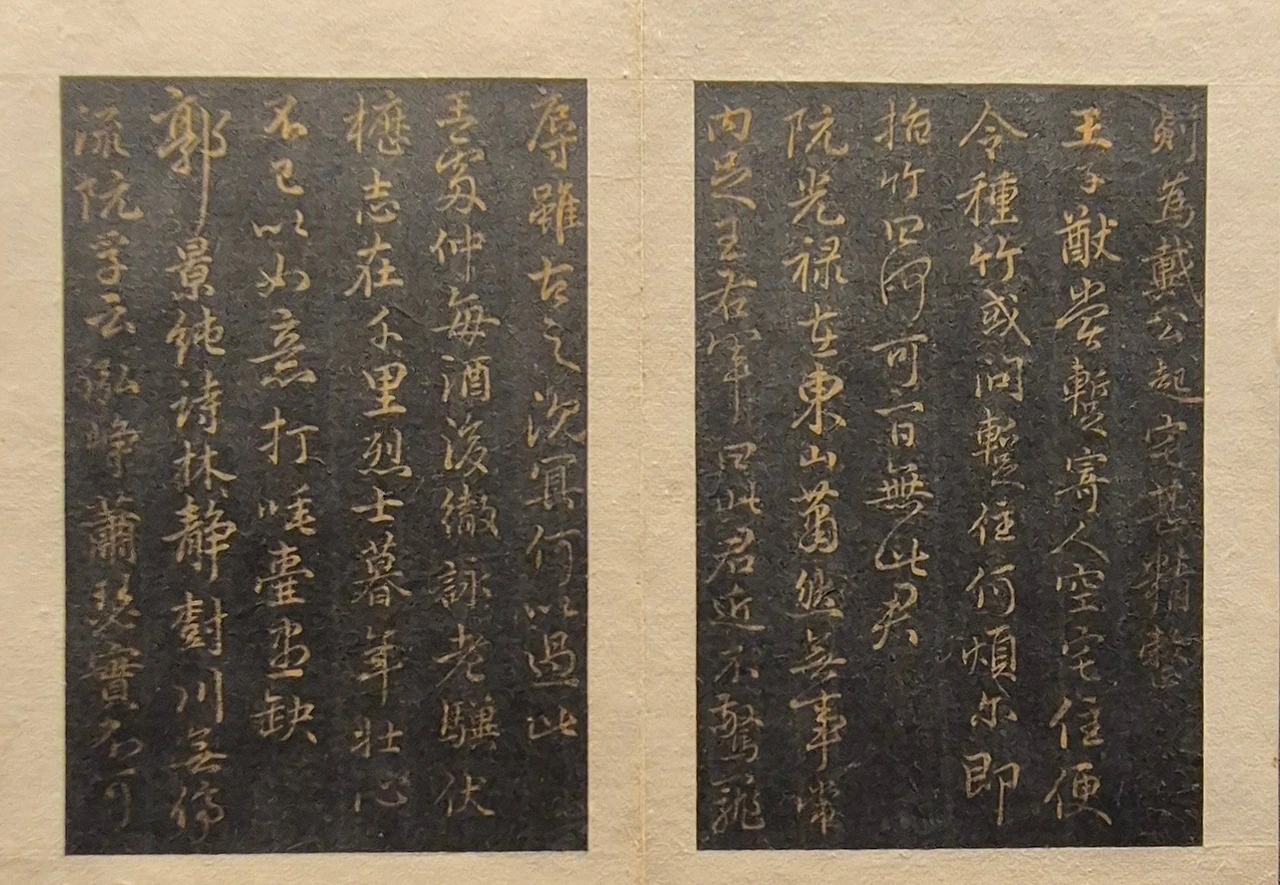 剡為戴公起宅甚精整
王子猷嘗暫寄人空宅住便
令種竹或問暫住何煩尔即
指竹曰何可一日無此君
阮光禄在東山蕭然無事常
内足王右軍曰此君近不驚寵
辱雖古之沉冥何以過此
王處仲每酒後輙詠老驥伏
櫪志在千里烈士暮年壮心
不已以如意打唾臺盡缺
郭景純詩林静對川無停
流阮孚云泓崢蕭瑟實不可